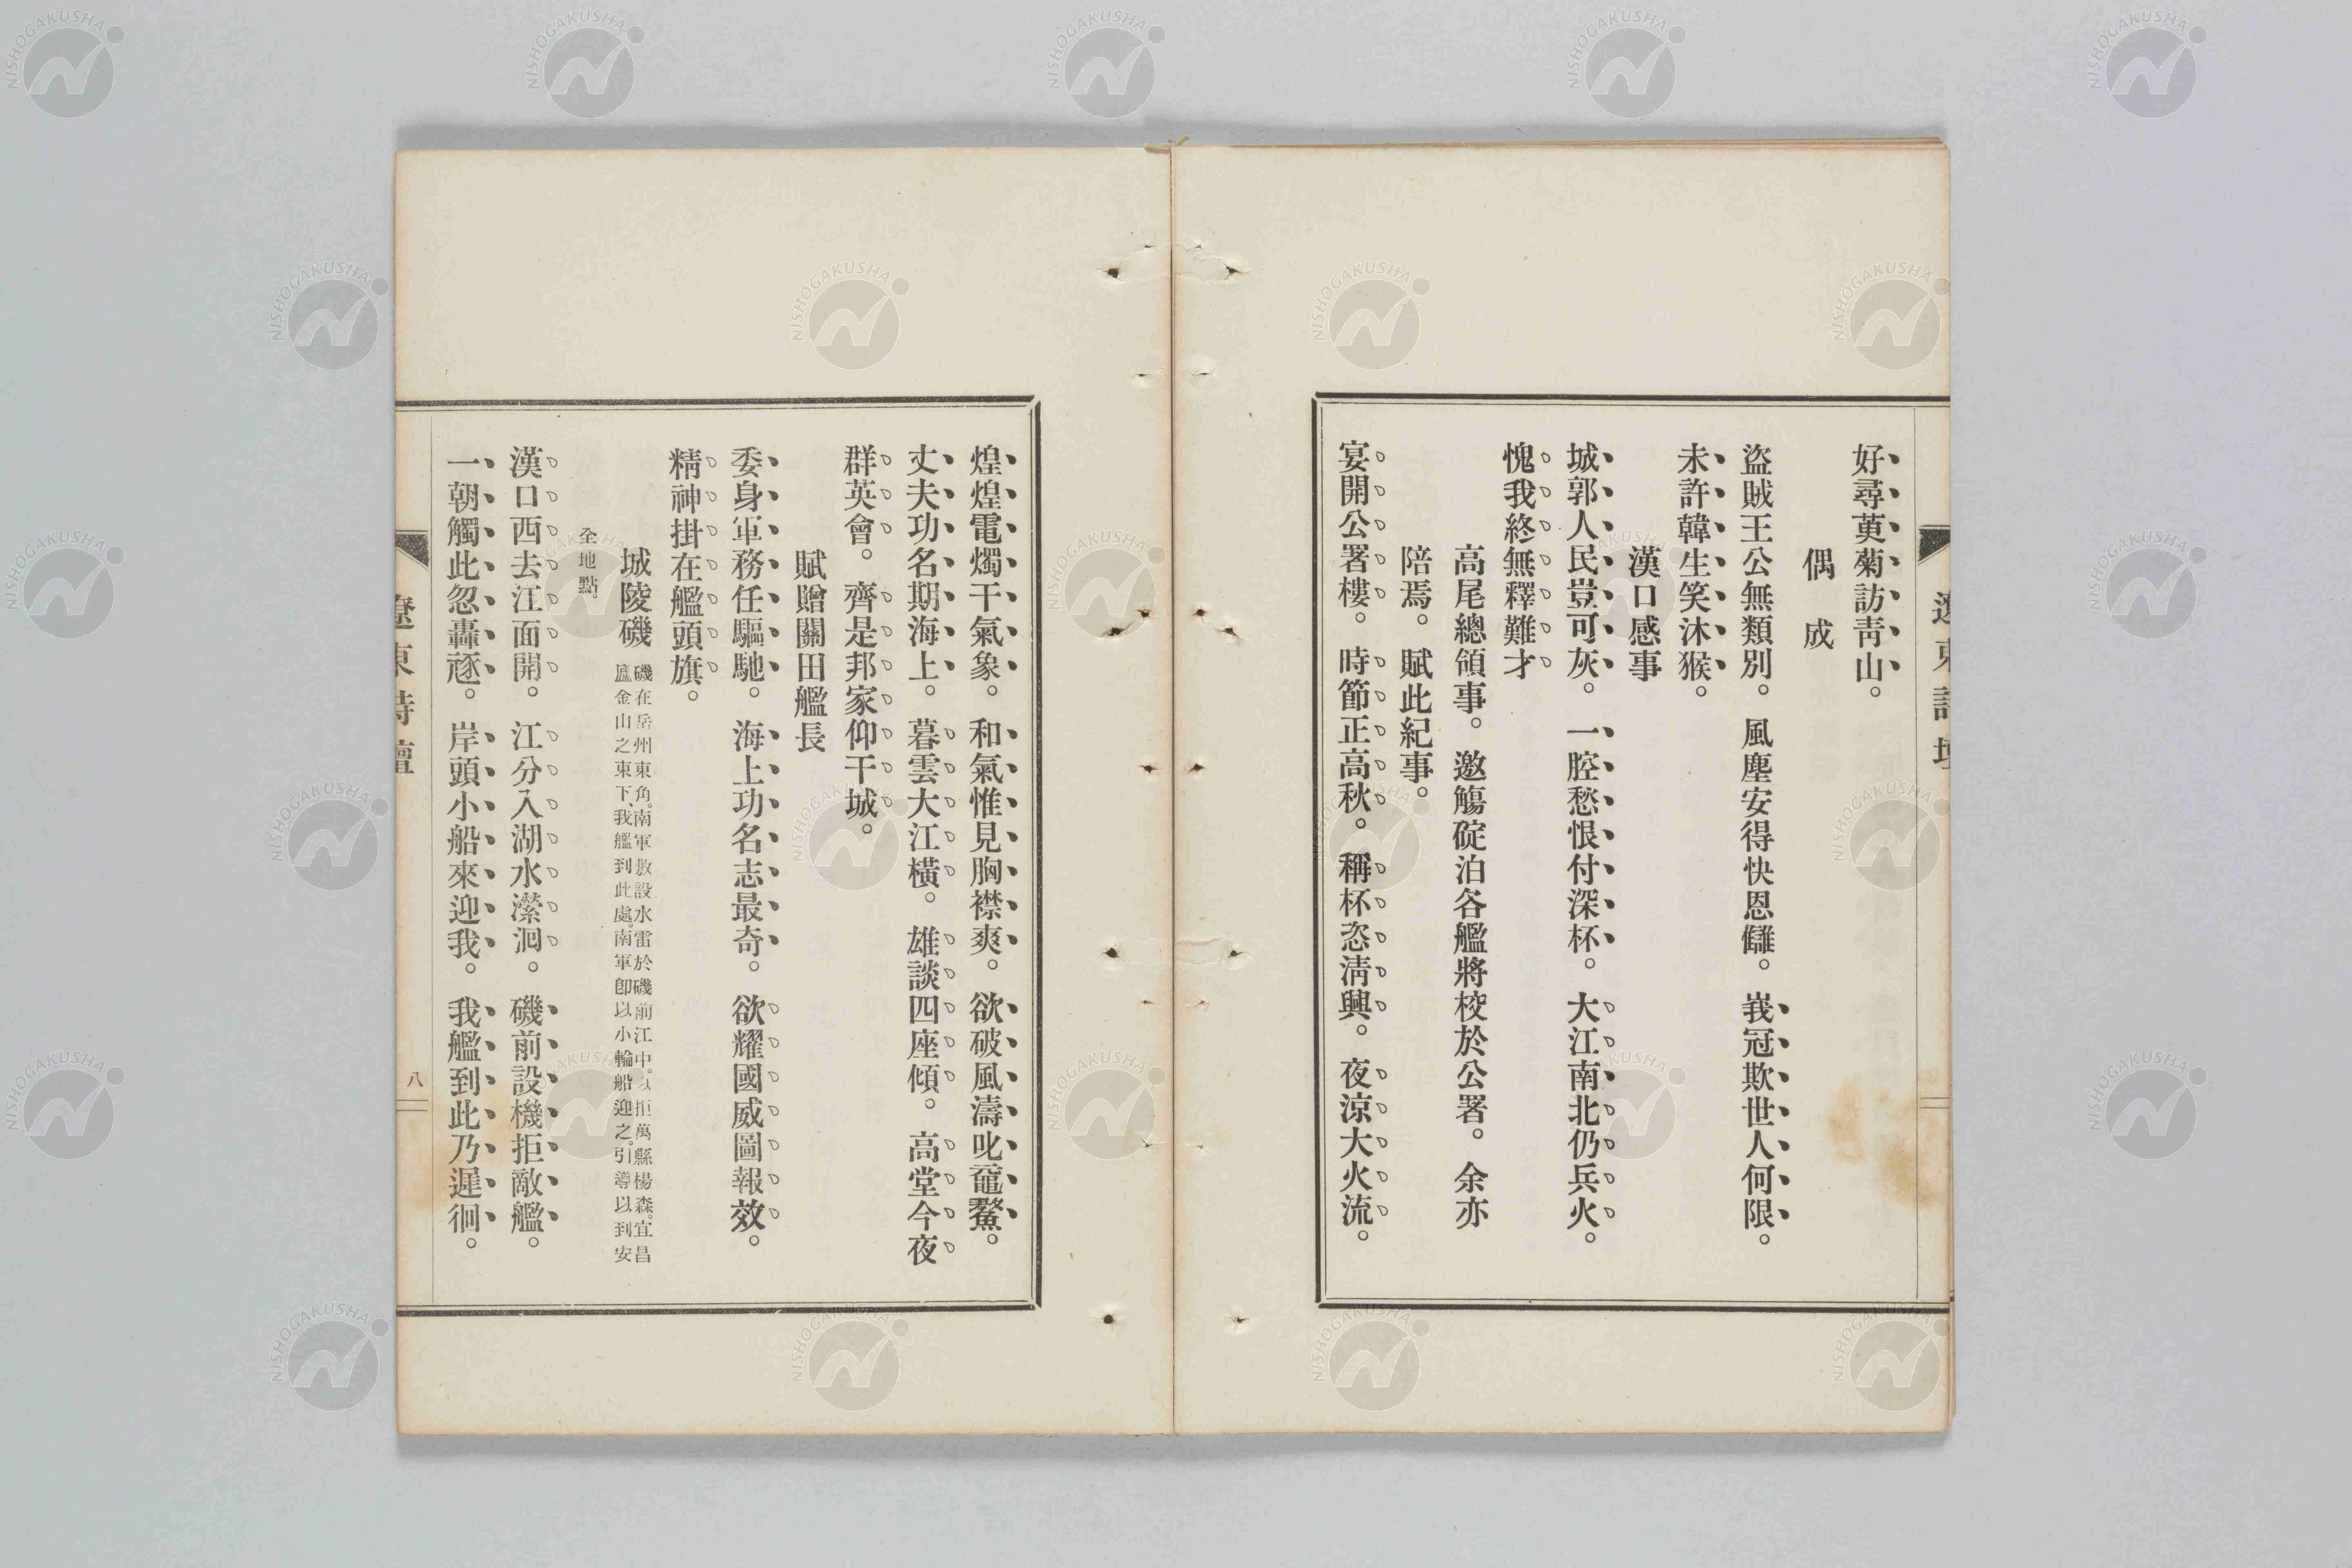 好尋萸菊訪靑山。
偶成
盜賊王公無類別。風塵安得快恩讎。峩冠欺世人何限。
未許韓生笑沐猴。
漢口感事
城郭人民豈可灰。一腔愁恨付深杯。大江南北仍兵火。
愧我終無釋難才
高尾總領事。邀觴碇泊各艦將校於公署。余亦
陪焉。賦此紀事。
宴開公署樓。時節正高秋。稱杯恣淸興。夜凉大火流。
煌煌電燭干氣象。和氣惟見胸襟爽。欲破風濤叱黿鼇。
丈夫功名期海上。暮雲大江橫。雄談四座傾。高堂今夜
群英會。齊是邦家仰干城。
賦贈關田艦長
委身軍務任驅馳。海上功名志最奇。欲耀國威圖報效。
精神掛在艦頭旗。
城陵磯
磯在岳州東角。南軍敷設水雷於磯前江中。以拒萬縣楊森。宜昌
盧金山之東下、我艦到此處。南軍卽以小輪船迎之。引導以到安
全地點。
漢口西去江面開。江分入湖水瀠洄。磯前設機拒敵艦。
一朝觸此忽轟豗。岸頭小船來迎我。我艦到此乃遲徊。
遼東詩壇
八